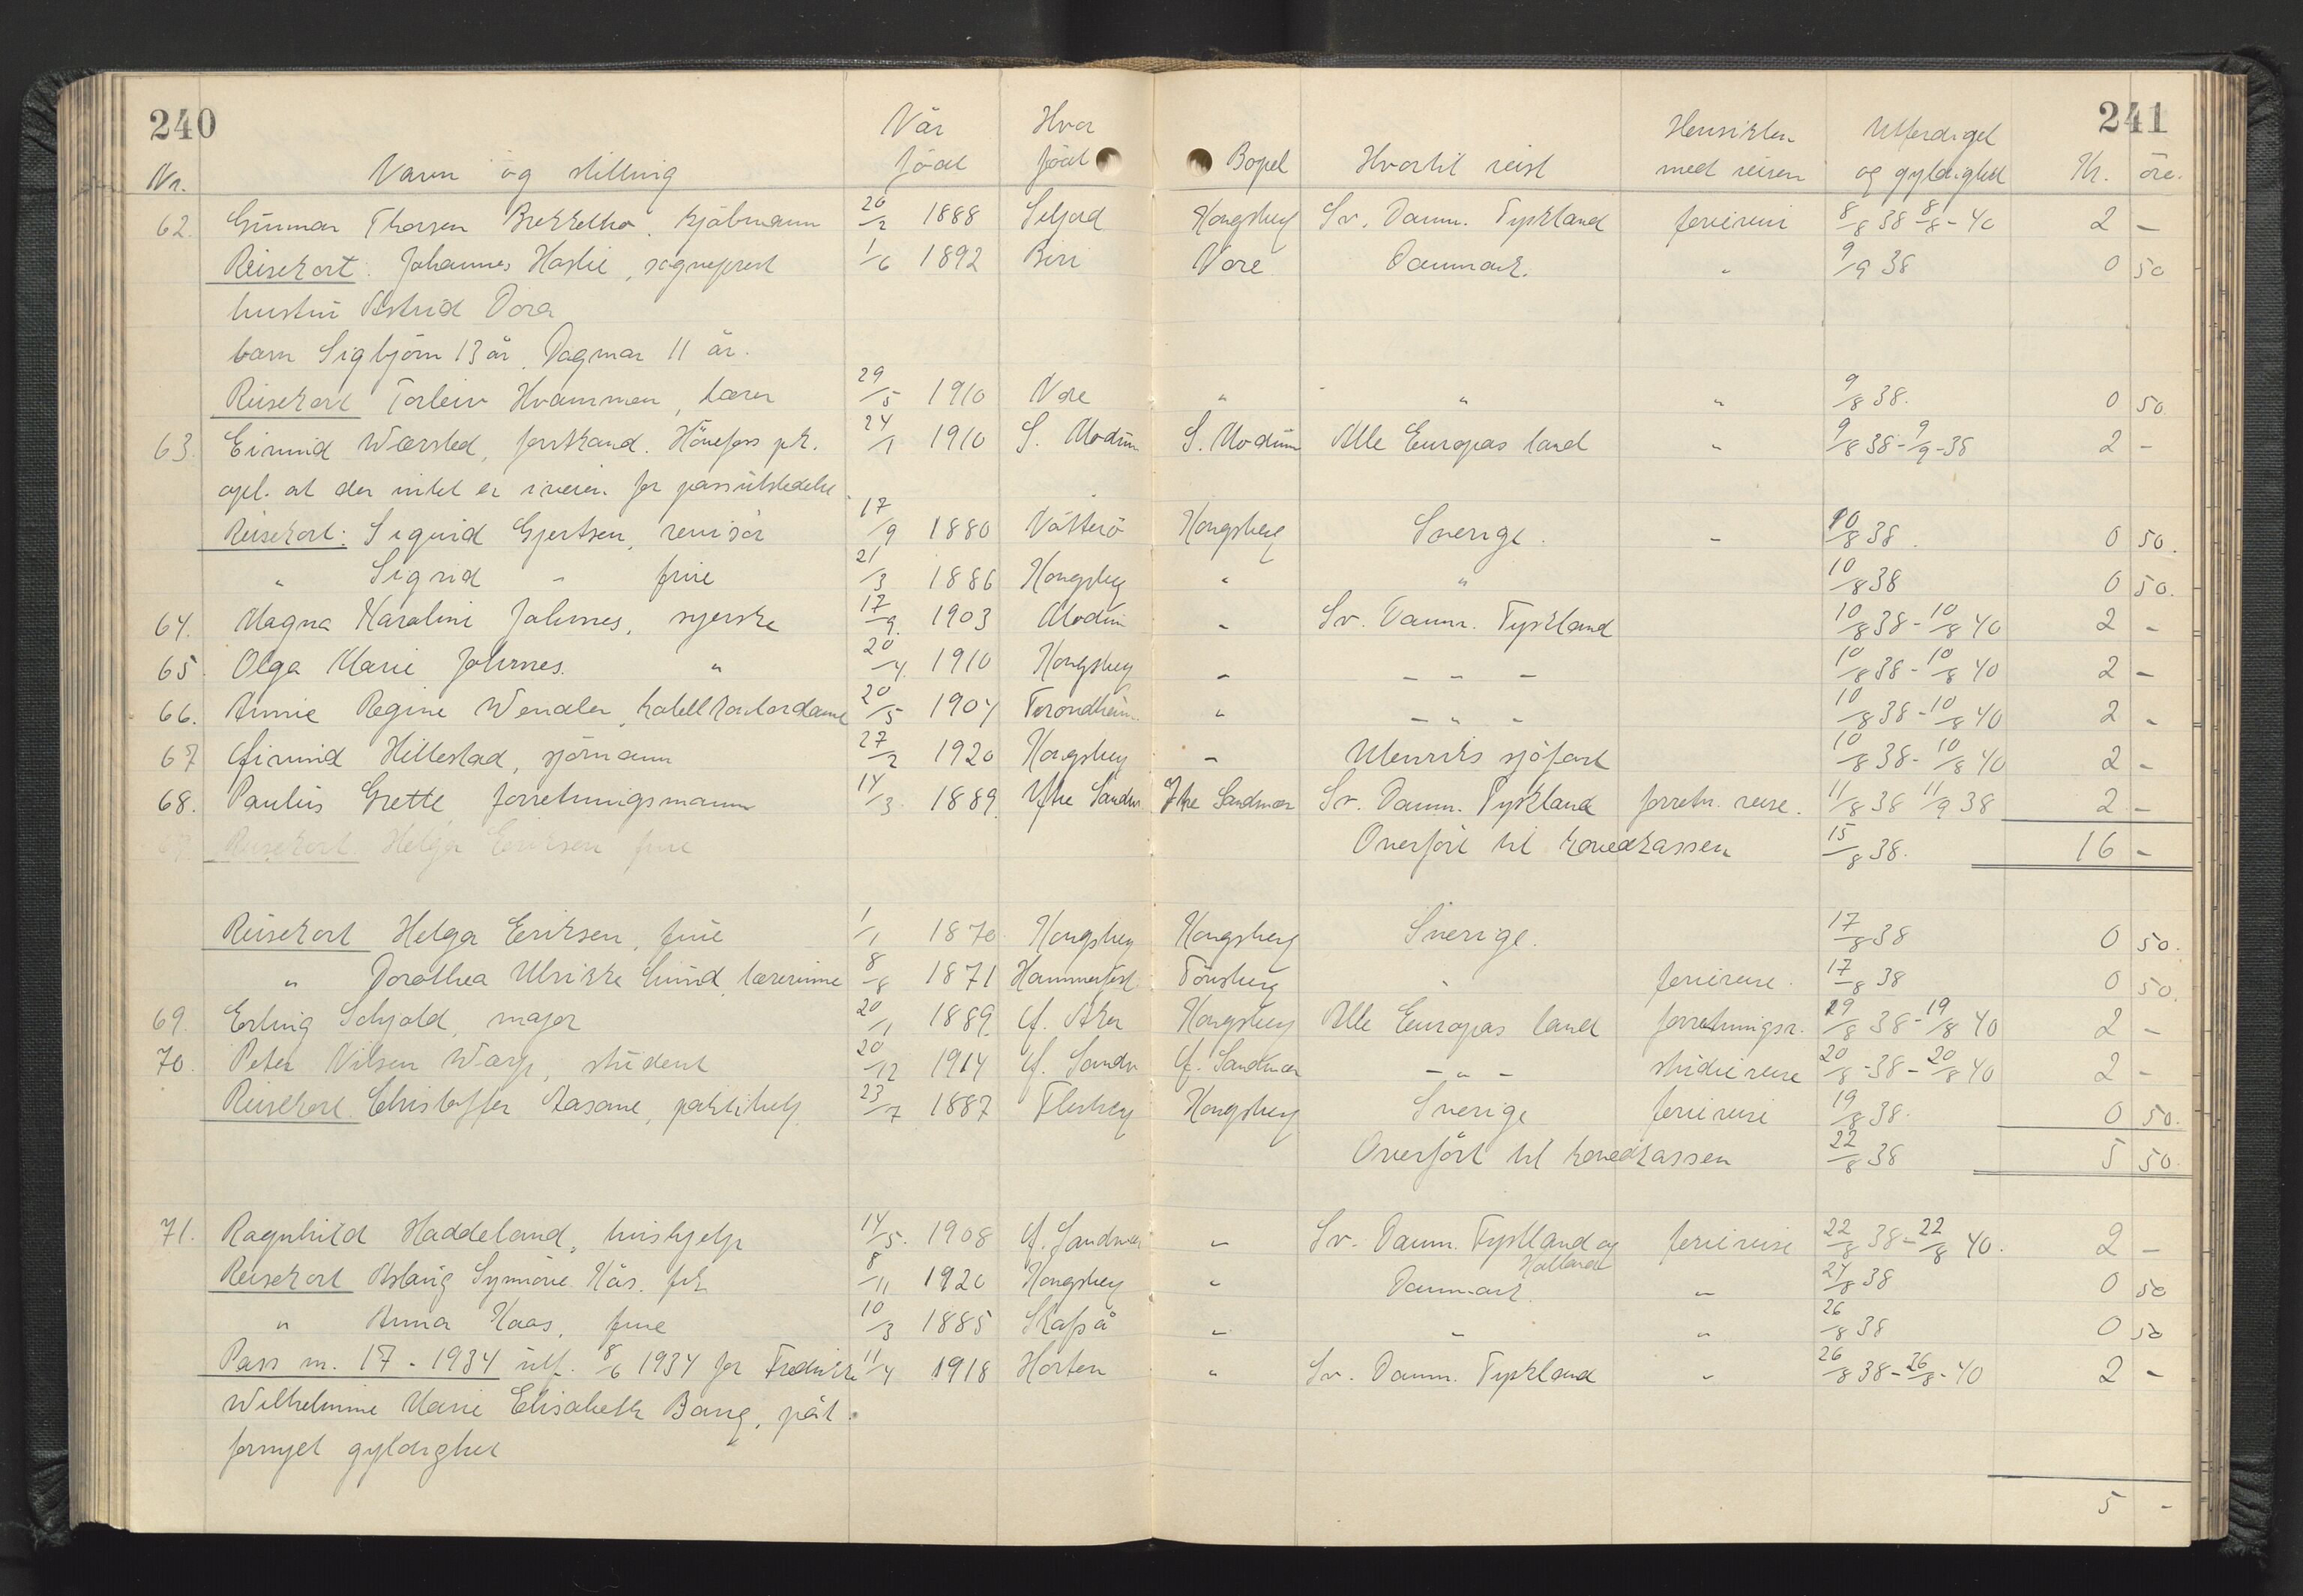 240
241
Nr. Navn og stilling Når født Hvor født Bopel Hvortil reist Hensikten med reisen Utferdiget og gyldighet Kr. öre.
62. Gunnar Thorsen kjöbmann 20/2 1888 Seljord Kongsberg Sv. Danm. Tyskland feriereise 8/8 38 - 8/8 - 40 2 -
Reisekort: Johannes Haslie, sogneprest 1/6 1892 Biri Nore Danmark. " 9/9 38 0 50
hustru Astrid Dora
barn Sigbjörn 13 år, Dagmar 11 år.
Reisekort Torleiv Hvammen, lærer 29/5 1910 Nore " " " 9/8 38. 0 50
63. Eivind Wærsted, forstkand. Hönefoss pk. 24/1 1910 S. Modum S. Modum Alle Europas land " 9/8 38 - 9/9 - 38 2 -
opl. at der intet er iveien for passutstedelse
Reisekort: Sigurd Gjertsen, revisor 17/9 1880 Nötterö Kongsberg Sverige. - 10/8 38. 0 50.
" Sigrid - frue 21/3 1886 Kongsberg " " 10/8 38 0 50.
64. Magna Karoline Johnnes, syerske 17/9. 1903 Modum " Sv. Danm. Tyskland 10/8 38 - 10/8 40 2 -
65. Olga Marie Johnnes. " 20/4. 1910 Kongsberg " - " - 10/8 38 - 10/8 40 2 -
66. Annie Regine Wendler, 20/5 1907 " - " - 10/8 38 - 10/8 40 2 -
67 Eivind Hillestad, sjömann 27/2 1920 Kongsberg " Utenriks sjöfart 10/8 38 - 10/8 40 2 -
68. Paulus Grette, forretningsmann 14/3. 1889. Ytre Sandsv. Ytre Sandsvær Sv. Danm. Tyskland forretn. reise. 11/8 38 11/9 38 2 -
Reisekort Helga Eriksen frue Overfört til hovedkassen 15/8 38. 16 -
Reisekort Helga Eriksen, frue 1/1 1870 Kongsberg Kongsberg Sverige. 17/8 38 0 50.
" Dorothea Ulrikke Lund, lærerinne 8/8 1871 Hammerfest Tönsberg " feriereise. 17/8 38 0 50.
69. Erling Schjold, major 20/1 1889. V. Aker Kongsberg Alle Europas land forretningsr. 19/8 38 - 19/8 40 2 -
70. Peter Nilsen Warp, student 20/12 1914 Y. Sandsv Y. Sandsvær - " - studiereise 20/8 - 38 - 20/8 40 2 -
Reisekort Christoffer Aasane, 23/7 1887 Flesberg Kongsberg Sverige feriereise 19/8 38. 0 50.
Overfört til hovedkassen 22/8 38 5 50.
71. Ragnhild Haddeland, hushjelp 14/5. 1908 Y. Sandsvær " Sv. Danm. Tyskland og Holland feriereise 22/8 38 - 22/8 40. 2 -
Reisekort Aslaug Synnöve Kås. frk 8/11 1920 Kongsberg " Danmark. " 24/8 38 0 50
" Anna Kaas, frue 10/3 1885 Skafså " " " 26/8 38 0 50
Pass nr. 17 - 1934 utf. 8/6 1934 for Fredrikke 11/4 1918 Horten " Sv. Danm. Tyskland " 26/8 38 - 26/8 - 40 2 -
Wilhelmine Marie Elisabeth Bang, påt.
fornyet gyldighet
5 -